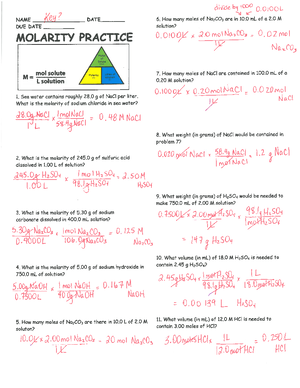 NAME Key! DATE
DUE DATE
MOLARITY PRACTICE
M = mol solute
L solution
1. Sea water contains roughly 28.0 g of NaCl per liter.
What is the molarity of sodium chloride in sea water?
28.0g NaCl | 1mol NaCl = 0.48 M NaCl
1 L | 58.4g NaCl
2. What is the molarity of 245.0 g of sulfuric acid
dissolved in 1.00 L of solution?
245.0g H2SO4 x 1mol H2SO4 = 2.50M
1.00 L 98.1g H2SO4 H2SO4
3. What is the molarity of 5.30 g of sodium
carbonate dissolved in 400.0 mL solution?
5.30g Na2CO3 x 1mol Na2CO3 = 0.125 M
0.4000L 106.0g Na2CO3 Na2CO3
4. What is the molarity of 5.00 g of sodium hydroxide in
750.0 mL of solution?
5.00g NaOH | 1mol NaOH = 0.167 M
0.7500L | 40.0g NaOH NaOH
5. How many moles of Na2CO3 are there in 10.0 L of 2.0 M
solution?
10.0L x 2.00mol Na2CO3 = 20 mol Na2CO3
1L
divide by 1000 0.000L
6. How many moles of Na2CO3 are in 10.0 mL of a 2.0 M
solution?
0.0100L x 2.0mol Na2CO3 = 0.02mol
1L Na2CO3
7. How many moles of NaCl are contained in 100.0 mL of a
0.20 M solution?
0.1000L x 0.20mol NaCl = 0.020mol
1L NaCl
8. What weight (in grams) of NaCl would be contained in
problem 7?
0.020 mol NaCl x 58.4g NaCl = 1.2 g NaCl
1mol NaCl
9. What weight (in grams) of H2SO4 would be needed to
make 750.0 mL of 2.00 M solution?
0.7500L x 2.00mol H2SO4 x 98.1g H2SO4
1L 1mol H2SO4
= 147g H2SO4
10. What volume (in mL) of 18.0 M H2SO4 is needed to
contain 2.45 g H2SO4?
2.45g H2SO4 x 1mol H2SO4 x 1L
98.1g H2SO4 18.0mol H2SO4
= 0.00139 L H2SO4
11. What volume (in mL) of 12.0 M HCl is needed to
contain 3.00 moles of HCl?
3.00mol HCl | 1L = 0.250 L
12.0mol HCl HCl